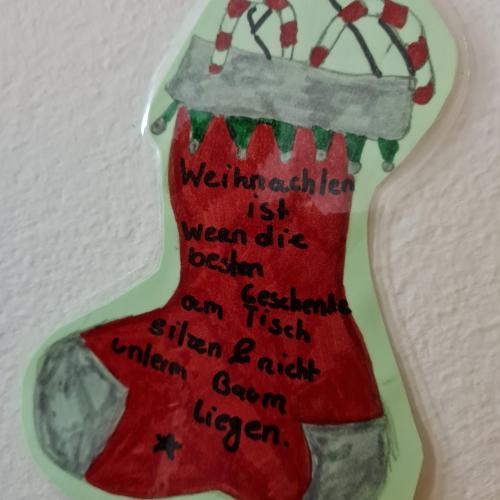 Weihnachten
ist
Wenn die
besten
Geschenke
am Tisch
sitzen & nicht
unterm Baum
liegen.